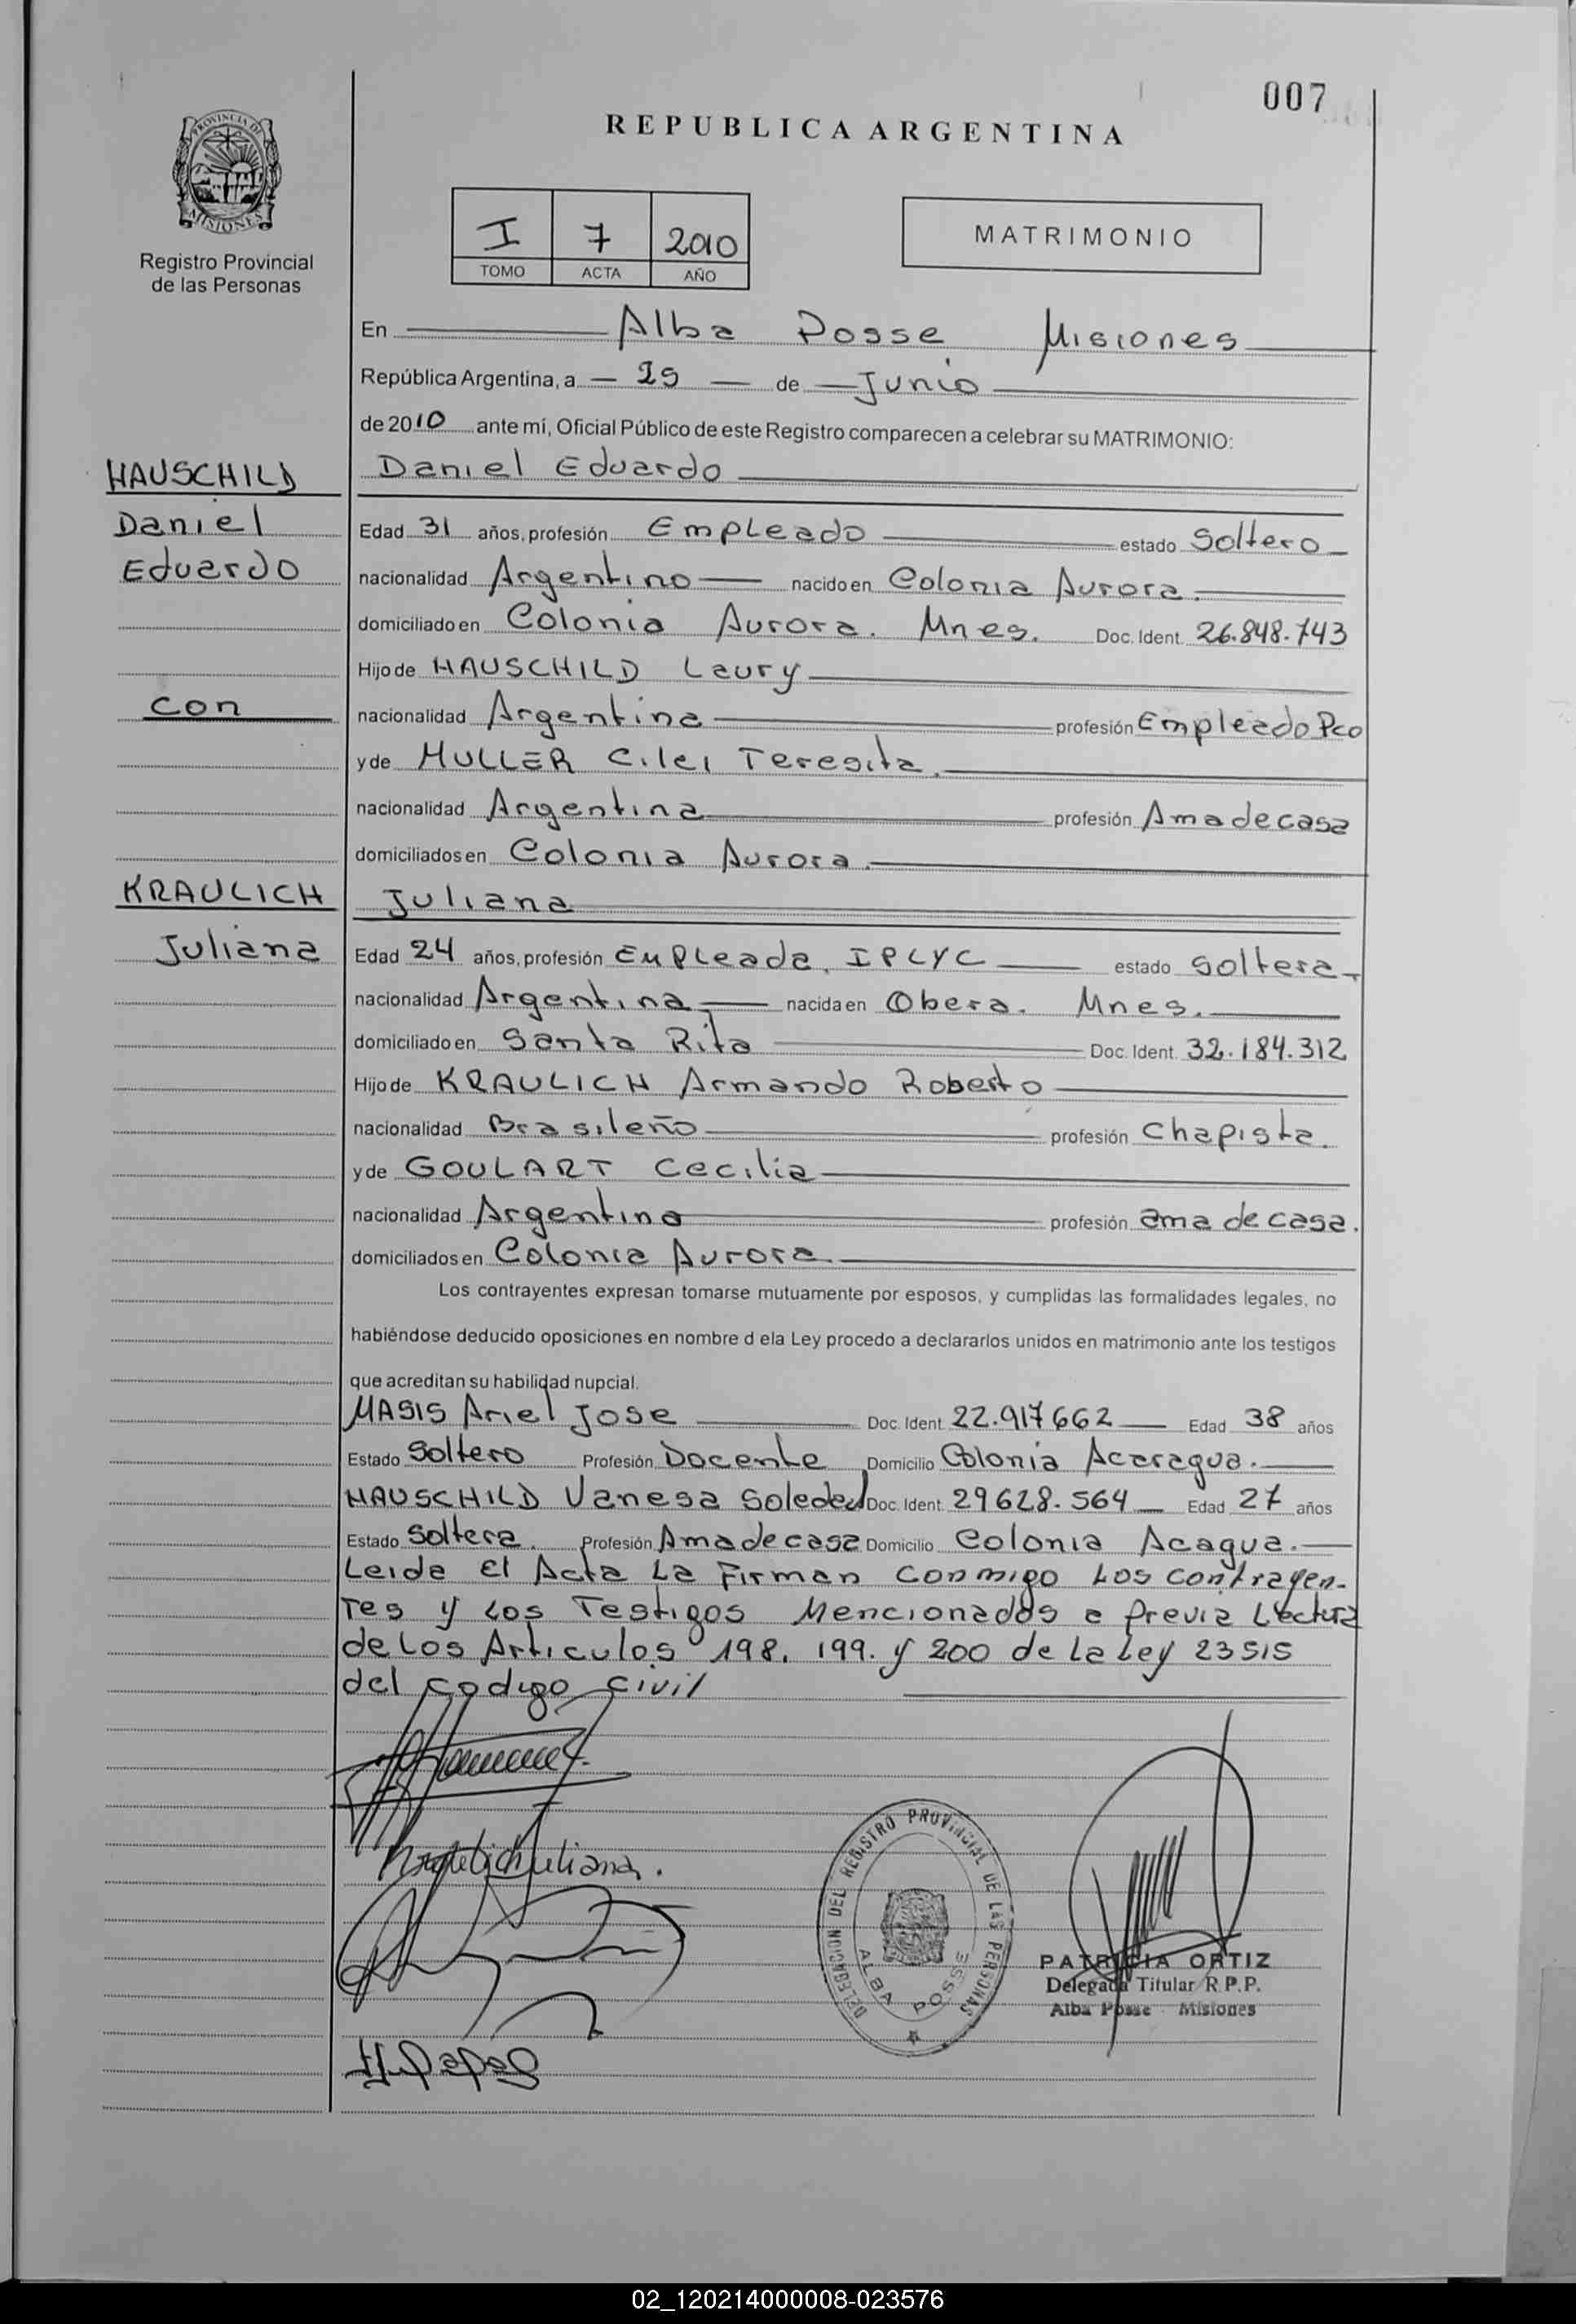 007
REPUBLICA ARGENTINA
PROVINCIA DE
MISIONES
Registro Provincial
de las Personas
I 7 2010
TOMO ACTA AÑO
MATRIMONIO
En Alba Posse Misiones
República Argentina, a de Junio
de 2010 ante mí, Oficial Público de este Registro comparecen a celebrar su MATRIMONIO:
HAUSCHILD Daniel Eduardo
Daniel Edad 31 años, profesión Empleado estado Soltero
Eduardo nacionalidad Argentino nacido en Colonia Aurora.
domiciliado en Colonia Aurora. Mnes. Doc. Ident. 26.848.743
Hijo de HAUSCHILD Laury
con nacionalidad Argentina profesión Empleado Pco
y de MULLER Cilei Teresita.
nacionalidad Argentina profesión Ama de casa
domiciliados en Colonia Aurora.
KRAULICH Juliana
Juliana Edad 24 años, profesión Empleada. IPLYC estado Soltera
nacionalidad Argentina nacida en Obera. Mnes.
domiciliado en Santa Rita Doc. Ident. 32.184.312
Hijo de KRAULICH Armando Roberto
nacionalidad Brasileño profesión Chapista.
y de GOULART Cecilia
nacionalidad Argentina profesión ama de casa.
domiciliados en Colonia Aurora.
Los contrayentes expresan tomarse mutuamente por esposos, y cumplidas las formalidades legales, no
habiéndose deducido oposiciones en nombre d ela Ley procedo a declararlos unidos en matrimonio ante los testigos
que acreditan su habilidad nupcial.
MASIS Ariel Jose Doc. Ident. 22.917662 Edad 38 años
Estado Soltero Profesión Docente Domicilio Colonia Acaragua.
HAUSCHILD Vanesa Soledad Doc. Ident. 29628.564 Edad 27 años
Estado Soltera. Profesión Ama de casa Domicilio Colonia Acagua.
Leida El Acta La Firman conmigo Los contrayen-
Tes y Los Testigos Mencionados a Previa Lectura
de Los Articulos 198. 199. y 200 de La Ley 23515
del codigo civil
Juliana.
DELEGACION DEL REGISTRO PROVINCIAL DE LAS PERSONAS
ALBA POSSE
PATRICIA ORTIZ
Delegada Titular R.P.P.
Alba Posse Misiones
02_120214000008-023576